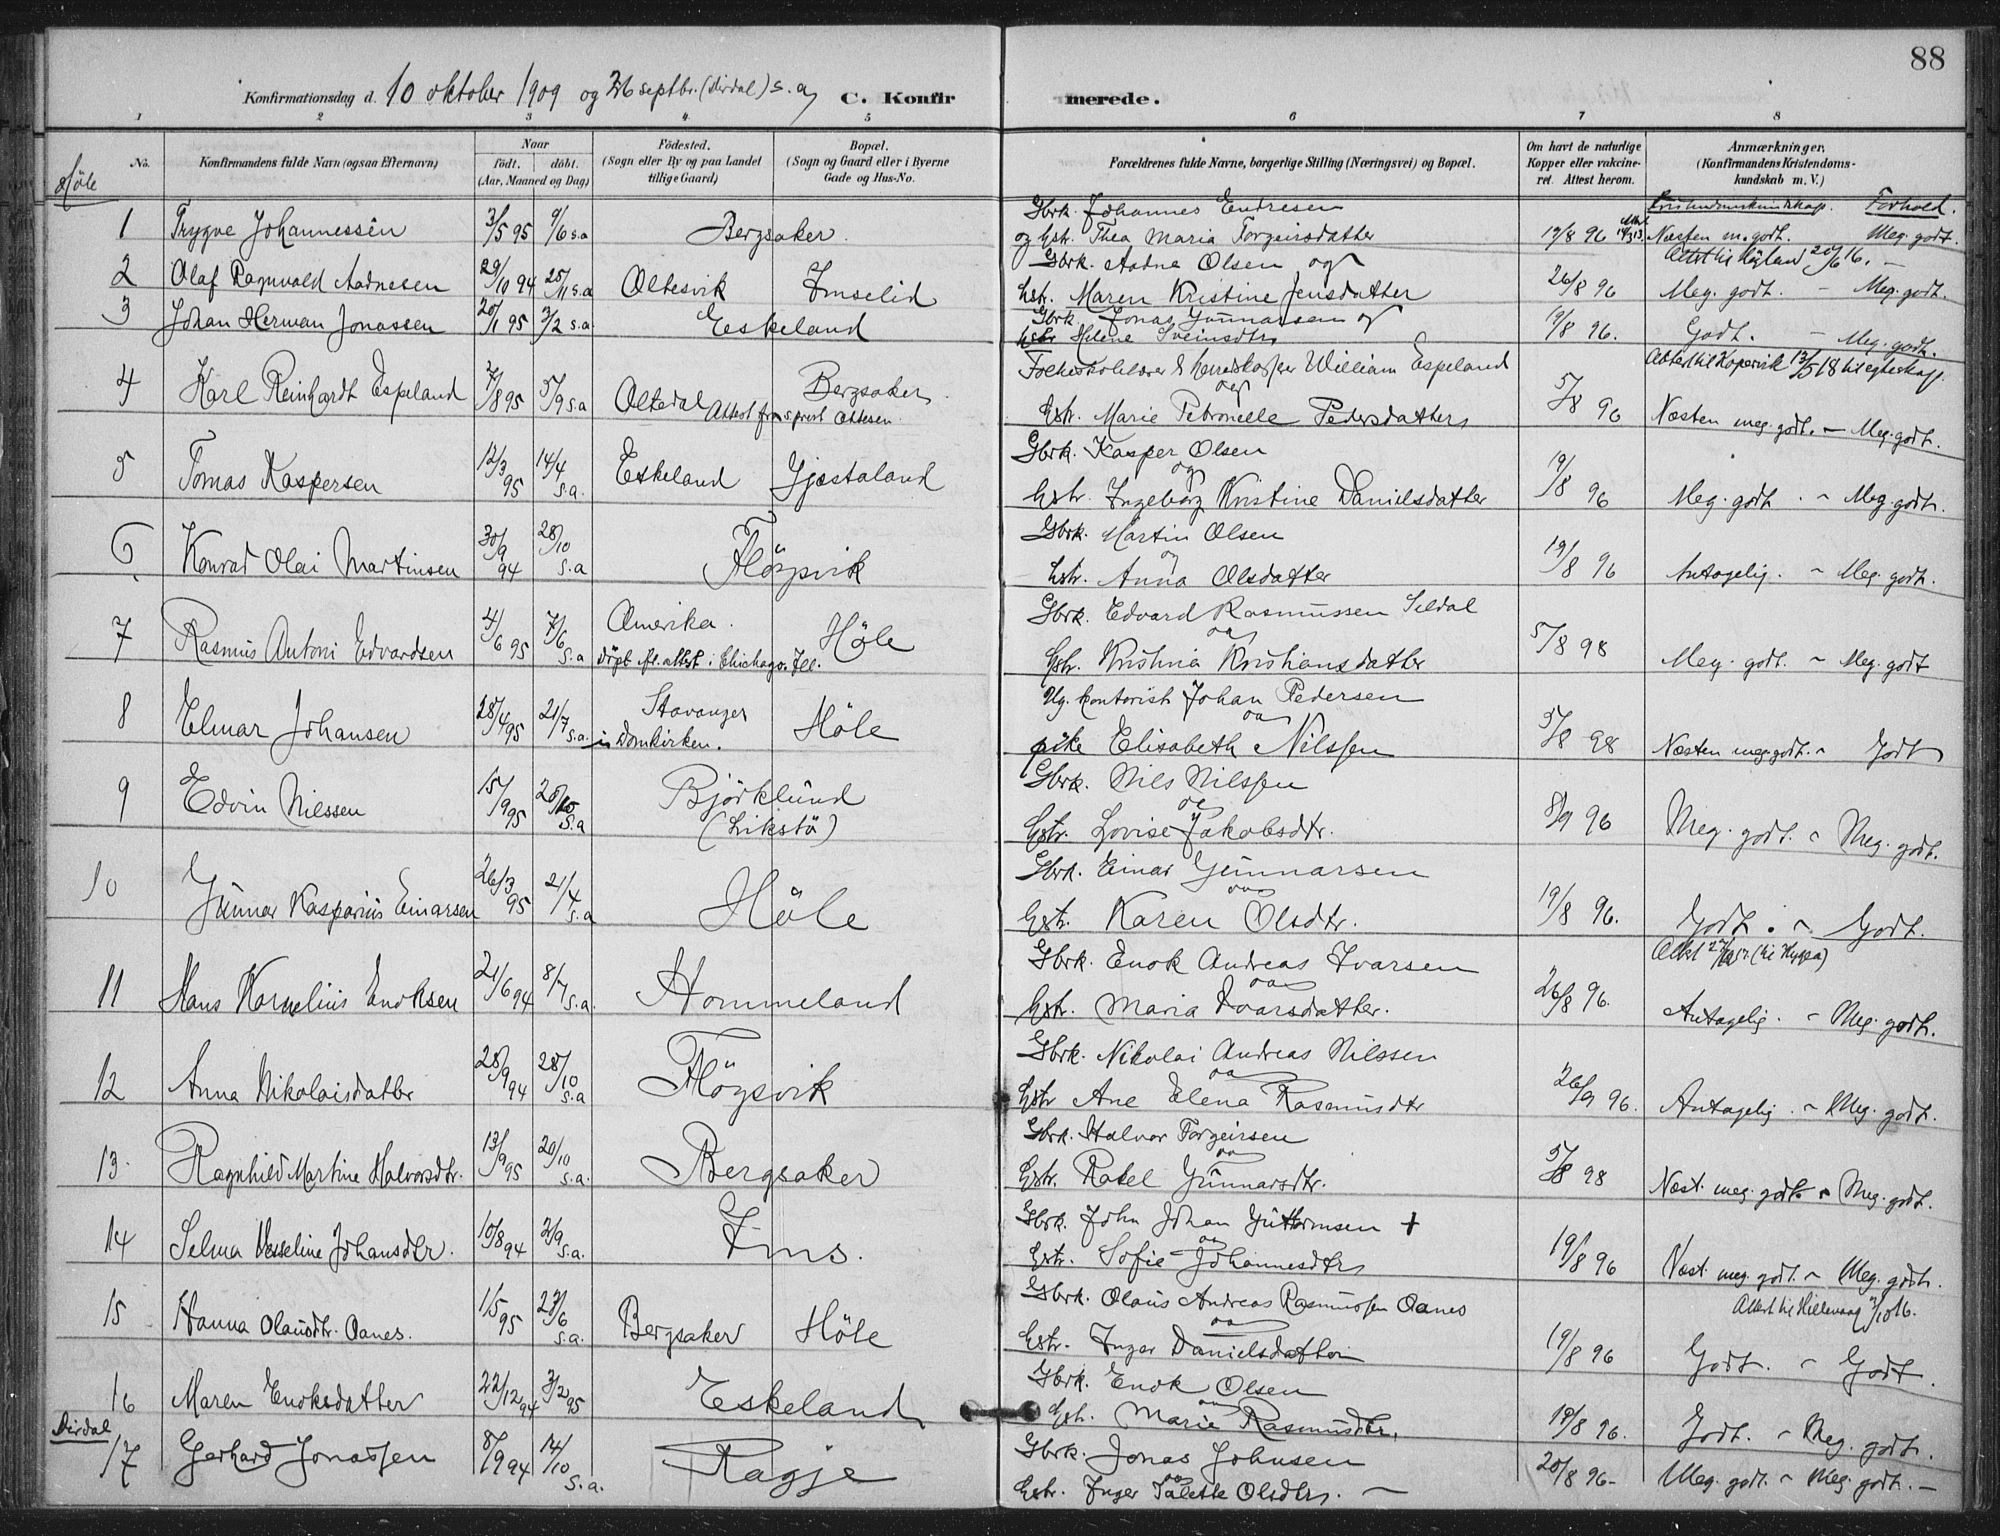 88
Konfirmationsdag d. 10 oktober 1909 og 26 septbr. (Dirdal) s.a. C. Konfirmerede.
1 2 3 4 5 6 7 8
No. Konfirmandens fulde Navn (ogsaa Efternavn) Naar født. døbt. (Aar, Maaned og Dag) Fødested. (Sogn eller By og paa Landet tillige Gaard) Bopæl. (Sogn og Gaard eller i Byerne Gade og Hus-No. Forældrenes fulde Navne, borgerlige Stilling (Næringsvei) og Bopæl. Om havt de naturlige Kopper eller vakcineret. Attest herom. Anmærkninger, (Konfirmandens Kristendomskundskab m. V.)
Höle
Kristendomskundskap. Forhold.
1 Trygve Johannessen 3/5 95 9/6 s.a Bergsaker. Gbrk. Johannes Endresen
og hstr. Thea Maria Torgeirsdatter 19/8 96 Næsten m. godt. Meg. godt.
Attest til Høyland 20/6 16.
2 Olaf Ragnvald Aadnesen 29/10 94 25/11 s.a Oltesvik Imselid Gbrk. Aadne Olsen og
hstr. Maren Kristine Jensdatter 26/8 96 Meg. godt. - Meg. godt.
3 Johan Herman Jonassen 20/1 95 3/2 s.a. Eskeland Gbrk. Jonas Gunnarsen og
hstr Helene Sveinsdtr 19/8 96. Godt. - Meg. godt.
Attest til Kopervik 13/5 18 til egteskap.
4 Karl Reinhardt Espeland 7/8 95 5/9 s.a Oltedal Bergsaker. Folkeskolelærer & herredskasser William Espeland
og
Attest fra sprest Ottesen.
hstr. Marie Petronelle Pedersdatter 5/8 96 Næsten meg. godt. - Meg. godt.
5 Tomas Kaspersen 12/3 95 14/4 s.a. Eskeland Gjestaland Gbrk. Kasper Olsen
og
hstr. Ingeborg Kristine Danielsdatter 19/8 96 Meg. godt. - Meg. godt.
6 Konrad Olai Martinsen 30/9 94 28/10 s.a Fløysvik Gbrk. Martin Olsen
og
hstr. Anna Olsdatter 19/8 96 Antagelig. - Meg. godt.
7 Rasmus Antoni Edvardsen 4/6 95 7/6 s.a Amerika. Höle Gbrk. Edvard Rasmussen Seldal
og
Døpt fl. attest i Chichago. Ill.
hstr. Kristina Kristiansdatter 5/8 98 Meg. godt. - Meg. godt
8 Elmar Johansen 28/4 95 21/7 s.a. Stavanger in Domkirken. Höle Ug. kontorist Johan Pedersen
og
pike Elisabeth Nilssen 5/8 98 Næsten meg. godt. - Godt
9 Edvin Nilssen 15/9 95 20/10 s.a Björklund
(Likstö) Gbrk. Nils Nilssen
og
hstr. Lovise Jakobsdtr. 8/9 96 Meg. godt. - Meg. godt.
10 Gunnar Kasparius Einarsen 26/3 95 21/4 s.a Höle Gbrk. Einar Gunnarsen
og
hstr. Karen Olsdtr. 19/8 96. Godt. - Godt.
11 Hans Kornelius Enoksen 21/6 94 8/7 s.a. Hommeland Gbrk. Enok Andreas Ivarsen
og
hstr. Maria Ivarsdatter. 26/8 96. Antagelig - Meg. godt.
12 Anna Nikolaisdatter 28/9 94 28/10 s.a Fløysvik Gbrk. Nikolai Andreas Nilssen
og
hstr Ane Elena Rasmusdtr 26/9 96. Antagelig. - Meg. godt.
13. Ragnhild Martine Halvorsdtr. 13/9 95 20/10 s.a. Bergsaker Gbrk. Halvor Torgeirsen
og
hstr. Rakel Gunnarsdtr. 5/8 98 Næst. meg. godt. - Meg. godt.
14 Selma Vesseline Johansdtr. 10/8 94 2/9 s.a. Ims. Gbrk. John Johan Guttormsen +
og
hstr. Sofie Johannesdtr 19/8 96 Næst. meg. godt. - Meg. godt.
15 Hanna Olausdtr. Oanes. 1/5 95 23/6 s.a. Bergsaker Höle Gbrk. Olaus Andreas Rasmussen Oanes
og
Attest til Hillevaag
hstr. Inger Danielsdatter 19/8 96 Godt. - Godt.
16 Maren Enoksdatter 22/12 94 3/2 95 Eskeland Gbrk. Enok Olsen
og
hstr. Marie Rasmusdtr. 19/8 96. Godt. - Meg. godt.
Dirdal
17 Gerhard Jonassen 8/9 94 14/10 s.a. Ragje Gbrk. Jonas Johnsen
og
hstr. Inger Talette Olsdtr. - 20/8 96- Meg. godt. - Meg. godt. -